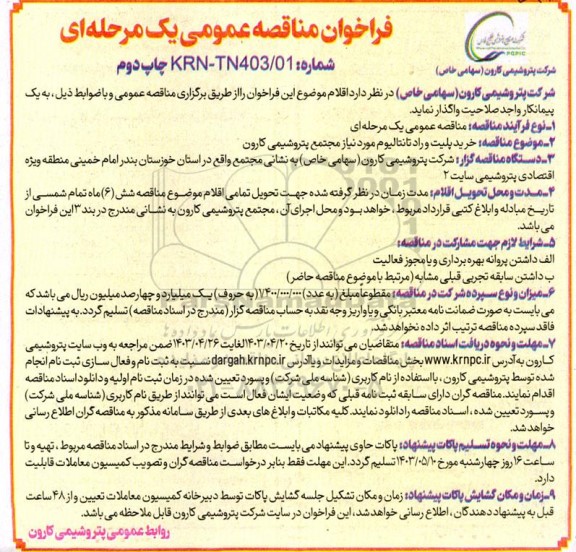 فراخوان مناقصه عمومی یک مرحله‌ای
شماره: KRN-TN403/01 چاپ دوم
PGPIC
شرکت پتروشیمی کارون (سهامی خاص)
شرکت پتروشیمی کارون (سهامی خاص) در نظر دارد اقلام موضوع این فراخوان را از طریق برگزاری مناقصه عمومی و با ضوابط ذیل، به یک
پیمانکار واجد صلاحیت واگذار نماید.
۱-نوع فرآیند مناقصه: مناقصه عمومی یک مرحله‌ای
۲-موضوع مناقصه: خرید پلیت و راد تانتالیوم مورد نیاز مجتمع پتروشیمی کارون
۳-دستگاه مناقصه گزار: شرکت پتروشیمی کارون (سهامی خاص) به نشانی مجتمع واقع در استان خوزستان بندر امام خمینی منطقه ویژه
اقتصادی پتروشیمی سایت ۲
۴-مدت و محل تحویل اقلام: مدت زمان در نظر گرفته شده جهت تحویل تمامی اقلام موضوع مناقصه شش (۶) ماه تمام شمسی از
تاریخ مبادله و ابلاغ کتبی قرارداد مربوط، خواهد بود و محل اجرای آن، مجتمع پتروشیمی کارون به نشانی مندرج در بند ۳ این فراخوان
می باشد.
۵-شرایط لازم جهت مشارکت در مناقصه:
الف داشتن پروانه بهره برداری و یا مجوز فعالیت
ب داشتن سابقه تجربی قبلی مشابه (مرتبط با موضوع مناقصه حاضر)
۶-میزان و نوع سپرده شرکت در مناقصه: مقطوعا مبلغ (به عدد) ۱/۴۰۰/۰۰۰/۰۰۰ (به حروف) یک میلیارد و چهارصد میلیون ریال می باشد که
می بایست به صورت ضمانت نامه معتبر بانکی و یا واریز وجه نقد به حساب مناقصه گزار (مندرج در اسناد مناقصه) تسلیم گردد. به پیشنهادات
فاقد سپرده مناقصه ترتیب اثر داده نخواهد شد.
۷-مهلت و نحوه دریافت اسناد مناقصه: متقاضیان می توانند از تاریخ ۱۴۰۳/۰۴/۲۰ لغایت ۱۴۰۳/۰۴/۲۶ ضمن مراجعه به وب سایت پتروشیمی
کارون به آدرس www.krnpc.ir بخش مناقصات و مزایدات و یا آدرس dargah.krnpc.ir نسبت به ثبت نام و فعال سازی ثبت نام انجام
شده توسط پتروشیمی کارون، با استفاده از نام کاربری (شناسه ملی شرکت) و پسورد تعیین شده در زمان ثبت نام اولیه و دانلود اسناد مناقصه
اقدام نمایند. مناقصه گران دارای سابقه ثبت نامه قبلی که وضعیت ایشان فعال است می توانند از طریق نام کاربری (شناسه ملی شرکت)
و پسورد تعیین شده، اسناد مناقصه را دانلود نمایند. کلیه مکاتبات و ابلاغ های بعدی از طریق سامانه مذکور به مناقصه گران اطلاع رسانی
خواهد شد.
۸-مهلت و نحوه تسلیم پاکات پیشنهاد: پاکات حاوی پیشنهاد می بایست مطابق ضوابط و شرایط مندرج در اسناد مناقصه مربوط، تهیه و تا
ساعت ۱۶ روز چهارشنبه مورخ ۱۴۰۳/۰۵/۱۰ تسلیم گردد. این مهلت فقط بنابر درخواست مناقصه گران و تصویب کمیسیون معاملات قابلیت
دارد.
۹-زمان و مکان گشایش پاکات پیشنهاد: زمان و مکان تشکیل جلسه گشایش پاکات توسط دبیرخانه کمیسیون معاملات تعیین و از ۴۸ ساعت
قبل به پیشنهاد دهندگان، اطلاع رسانی خواهد شد، این فراخوان در سایت شرکت پتروشیمی کارون قابل ملاحظه می باشد.
روابط عمومی پتروشیمی کارون